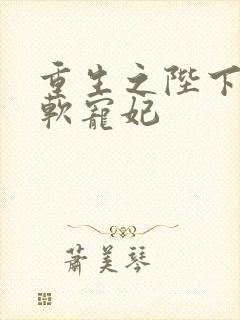 重生之陛下
軟寵妃
蕭美琴